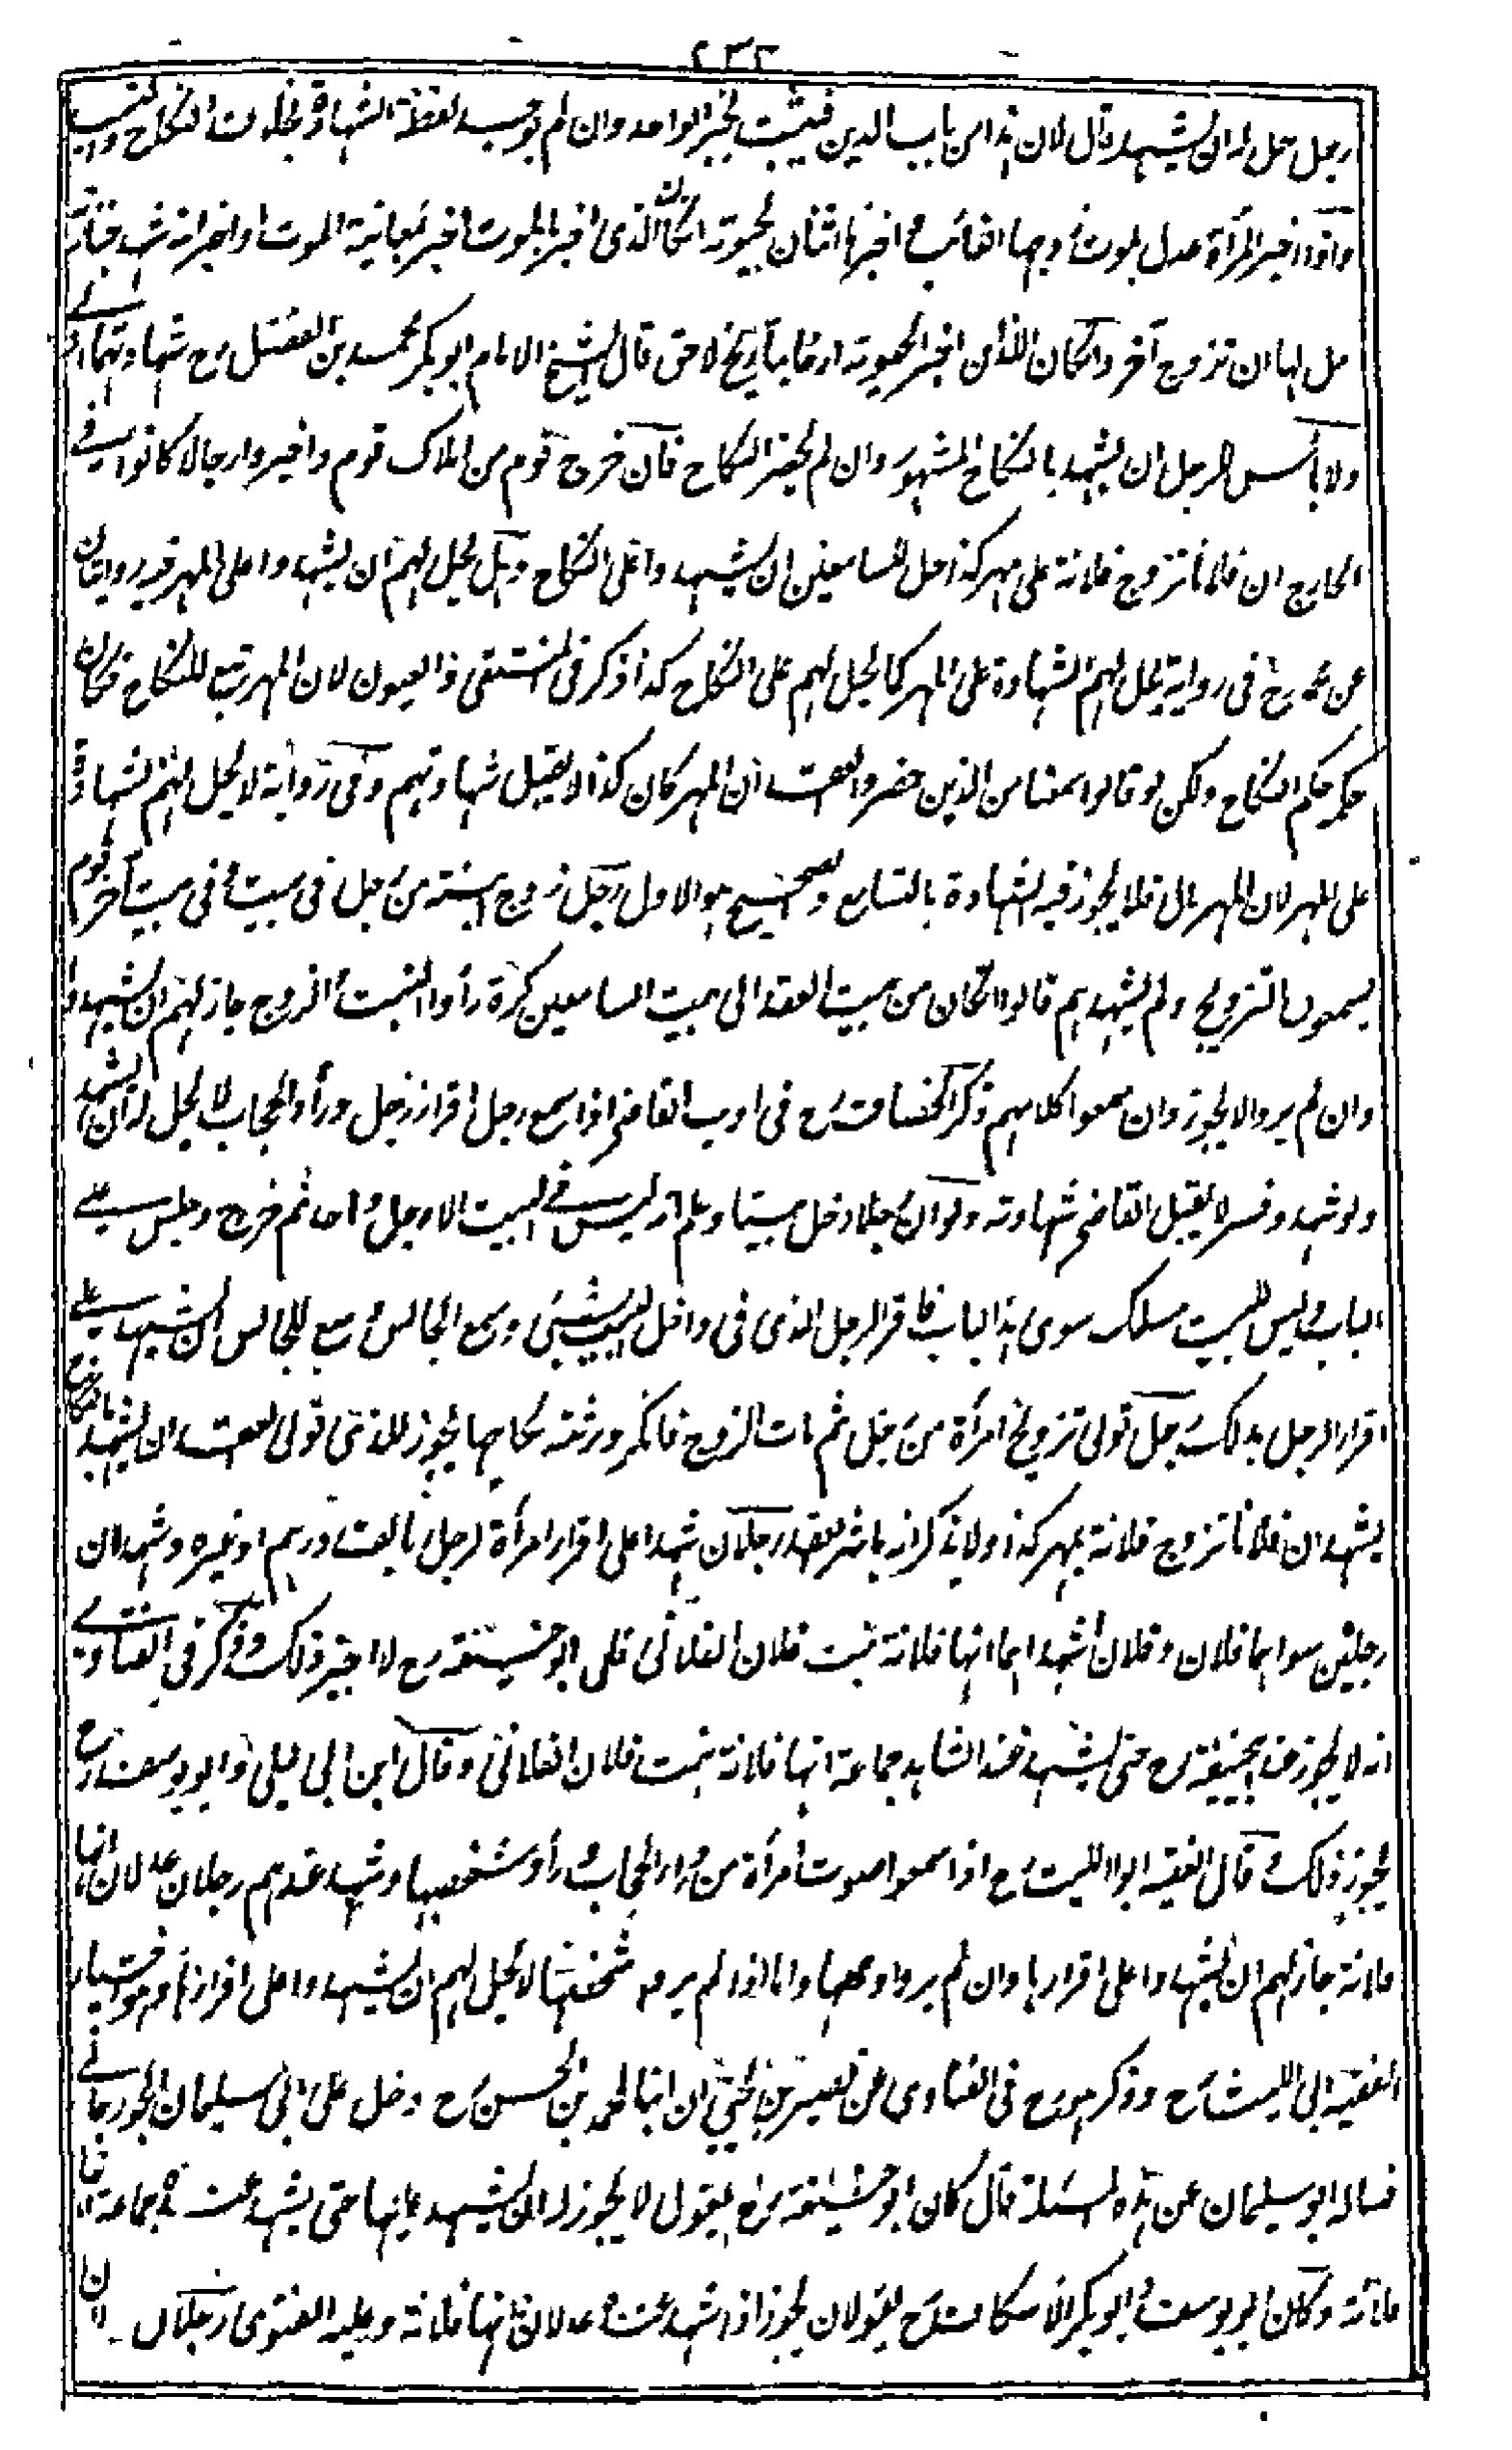 ٢٣٢
رجل حل له ان يشهد قال لان هذا من باب الدين فيثبت بخبر الواحد وان لم يوجد لفظة الشهادة بخلاف النكاح والنسب
واذا اخبر المرأة عدل بموت زوجها الغائب واخبرها اثنان بحيوته ان كان الذى اخبر بالموت اخبر بمعاينة الموت او اخبر انه شهد جنازته
حل لها ان تزوج آخر وان كان اللذان اخبرا بحيوته ارخا بتاريخ لاحق قال الشيخ الامام ابو بكر محمد بن الفضل رح شهادتهما اولى
ولا بأس للرجل ان يشهد بالنكاح المشهور وان لم يحضر النكاح فان خرج قوم من املاك قوم واخبروا رجالا كانوا فى
الخارج ان فلانا تزوج فلانة على مهر كذا حل للسامعين ان يشهدوا على النكاح وهل يحل لهم ان يشهدوا على المهر فيه روايتان
عن محمد رح فى رواية يحل لهم الشهادة على المهر كما يحل لهم على النكاح كذا ذكر فى المنتقى والعيون لان المهر تبع للنكاح فكان
حكمه حكم النكاح ولكن لو قالوا سمعنا من الذين حضروا العقد ان المهر كان كذا لا يقبل شهادتهم وفى رواية لا يحل لهم الشهادة
على المهر لان المهر مال فلا يجوز فيه الشهادة بالتسامع والصحيح هو الاول رجل زوج ابنته من رجل فى بيت وفى بيت آخر قوم
يسمعون التزويج ولم يشهدهم قالوا ان كان من بيت العقد الى بيت السامعين كوة رأوا البنت والزوج جاز لهم ان يشهدوا
وان لم يروا لا يجوز وان سمعوا كلامهم وذكر الخصاف رح فى ادب القاضى اذا سمع رجل اقرار رجل وراء الحجاب لا يحل له ان يشهد
ولو شهد وفسر لا يقبل القاضى شهادته ولو ان رجلا دخل بيتا وعلم انه ليس فى البيت الا رجل واحد ثم خرج وجلس على
الباب وليس للبيت مسلك سوى هذا الباب فاقر الرجل الذى فى داخل البيت بشئ وسمع الجالس وسع للجالس ان يشهد على
اقرار الرجل بذلك رجل تولى تزويج امرأة من رجل ثم مات الزوج فانكر ورثته نكاحها يجوز للذى تولى العقد ان يشهد بالنكاح
يشهد ان فلانا تزوج فلانة بمهر كذا ولا يذكر انه باشر العقد رجلان شهدا على اقرار امرأة لرجل بالف درهم او غيره وشهد ان
رجلين سواهما فلان وفلان اشهداهما انها فلانة بنت فلان الفلانى قال ابو حنيفة رح لا اجيز ذلك وذكر فى الفتاوى
انه لا يجوز عند ابى حنيفة رح حتى يشهد عند الشاهد جماعة انها فلانة بنت فلان الفلانى وقال ابن ابى ليلى وابو يوسف رح
يجوز ذلك وقال الفقيه ابو الليث رح اذا سمعوا صوت امرأة من وراء الحجاب ورأوا شخصها وشهد عندهم رجلان عدلان انها
فلانة جاز لهم ان يشهدوا على اقرارها وان لم يروا وجهها واما اذا لم يروا شخصها لا يحل لهم ان يشهدوا على اقرارها وهو اختيار
الفقيه ابى الليث رح وذكر هو رح فى الفتاوى عن نصير بن يحيى ان ابنا لمحمد بن الحسن رح دخل على ابى سليمان الجوزجانى
فساله ابو سليمان عن هذه المسئلة قال كان ابو حنيفة رح يقول لا يجوز له ان يشهد عليها حتى يشهد عنده جماعة انها
فلانة وكان ابو يوسف وابو بكر الاسكاف رح يقولان يجوز اذا شهد عنده عدلان انها فلانة وعليه الفتوى رجلان